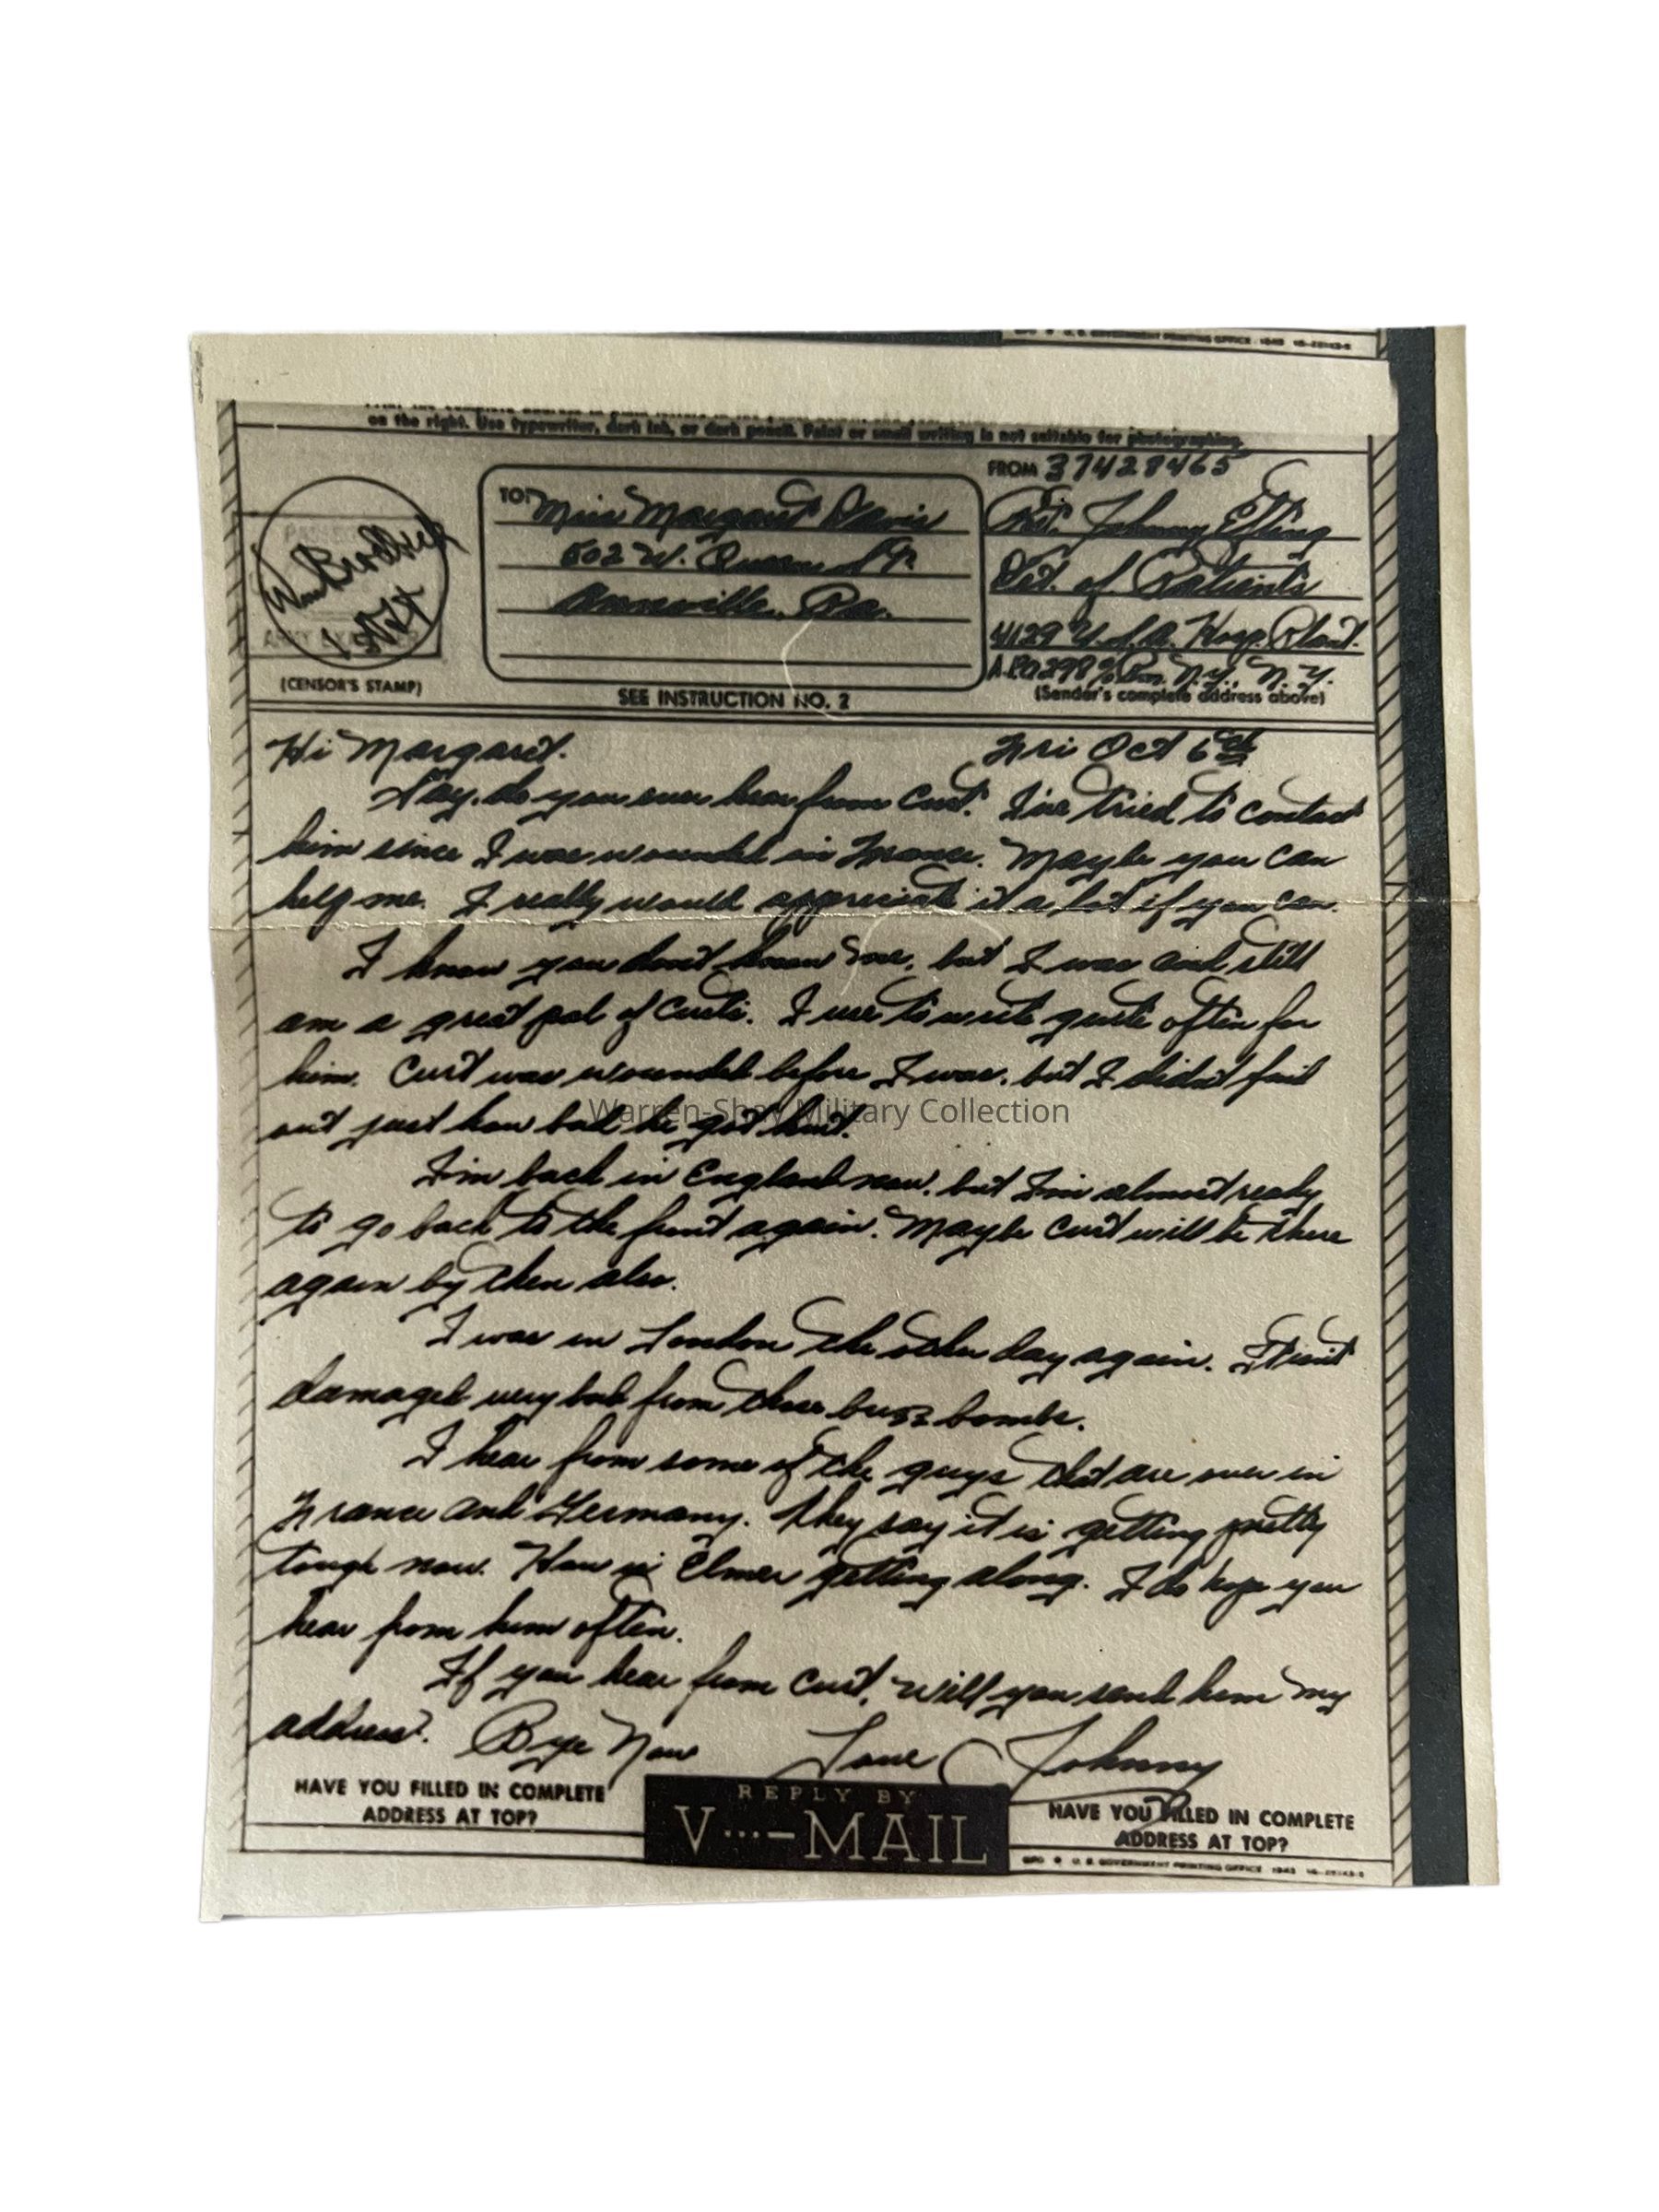 GPO ★ U. S. GOVERNMENT PRINTING OFFICE : 1943 16-28143-5
on the right. Use typewriter, dark ink, or dark pencil. Faint or small writing is not suitable for photographing.
FROM 37428465
TO Miss Margaret Davis
Pvt. Johnny Etling
502 W. Queen St.
Det. of Patients
Annville, Pa.
4129 U.S.A. Hosp. Plant.
A.P.O. 298 % P.m. N.Y., N.Y.
(CENSOR'S STAMP)
SEE INSTRUCTION NO. 2
(Sender's complete address above)
Hi Margaret. Fri Oct 6th
Say, do you ever hear from Curt. I've tried to contact
him since I was wounded in France. Maybe you can
help me. I really would appreciate it a lot if you can.
I know you don't know me, but I was and still
am a great pal of Curts. I use to write quite often for
him. Curt was wounded before I was, but I didn't find
out just how bad he got hurt.
Warren-Shay Military Collection
I'm back in England now, but I'm almost ready
to go back to the front again. Maybe Curt will be there
again by then also.
I was in London the other day again. It isn't
damaged very bad from those buzz bombs.
I hear from some of the guys that are over in
France and Germany. They say it is getting pretty
tough now. How is Elmer getting along. I do hope you
hear from him often.
If you hear from Curt, will you send him my
address. Bye Now Love Johnny
HAVE YOU FILLED IN COMPLETE
ADDRESS AT TOP?
REPLY BY
V···—MAIL
HAVE YOU FILLED IN COMPLETE
ADDRESS AT TOP?
GPO ★ U. S. GOVERNMENT PRINTING OFFICE : 1943 16-28143-5